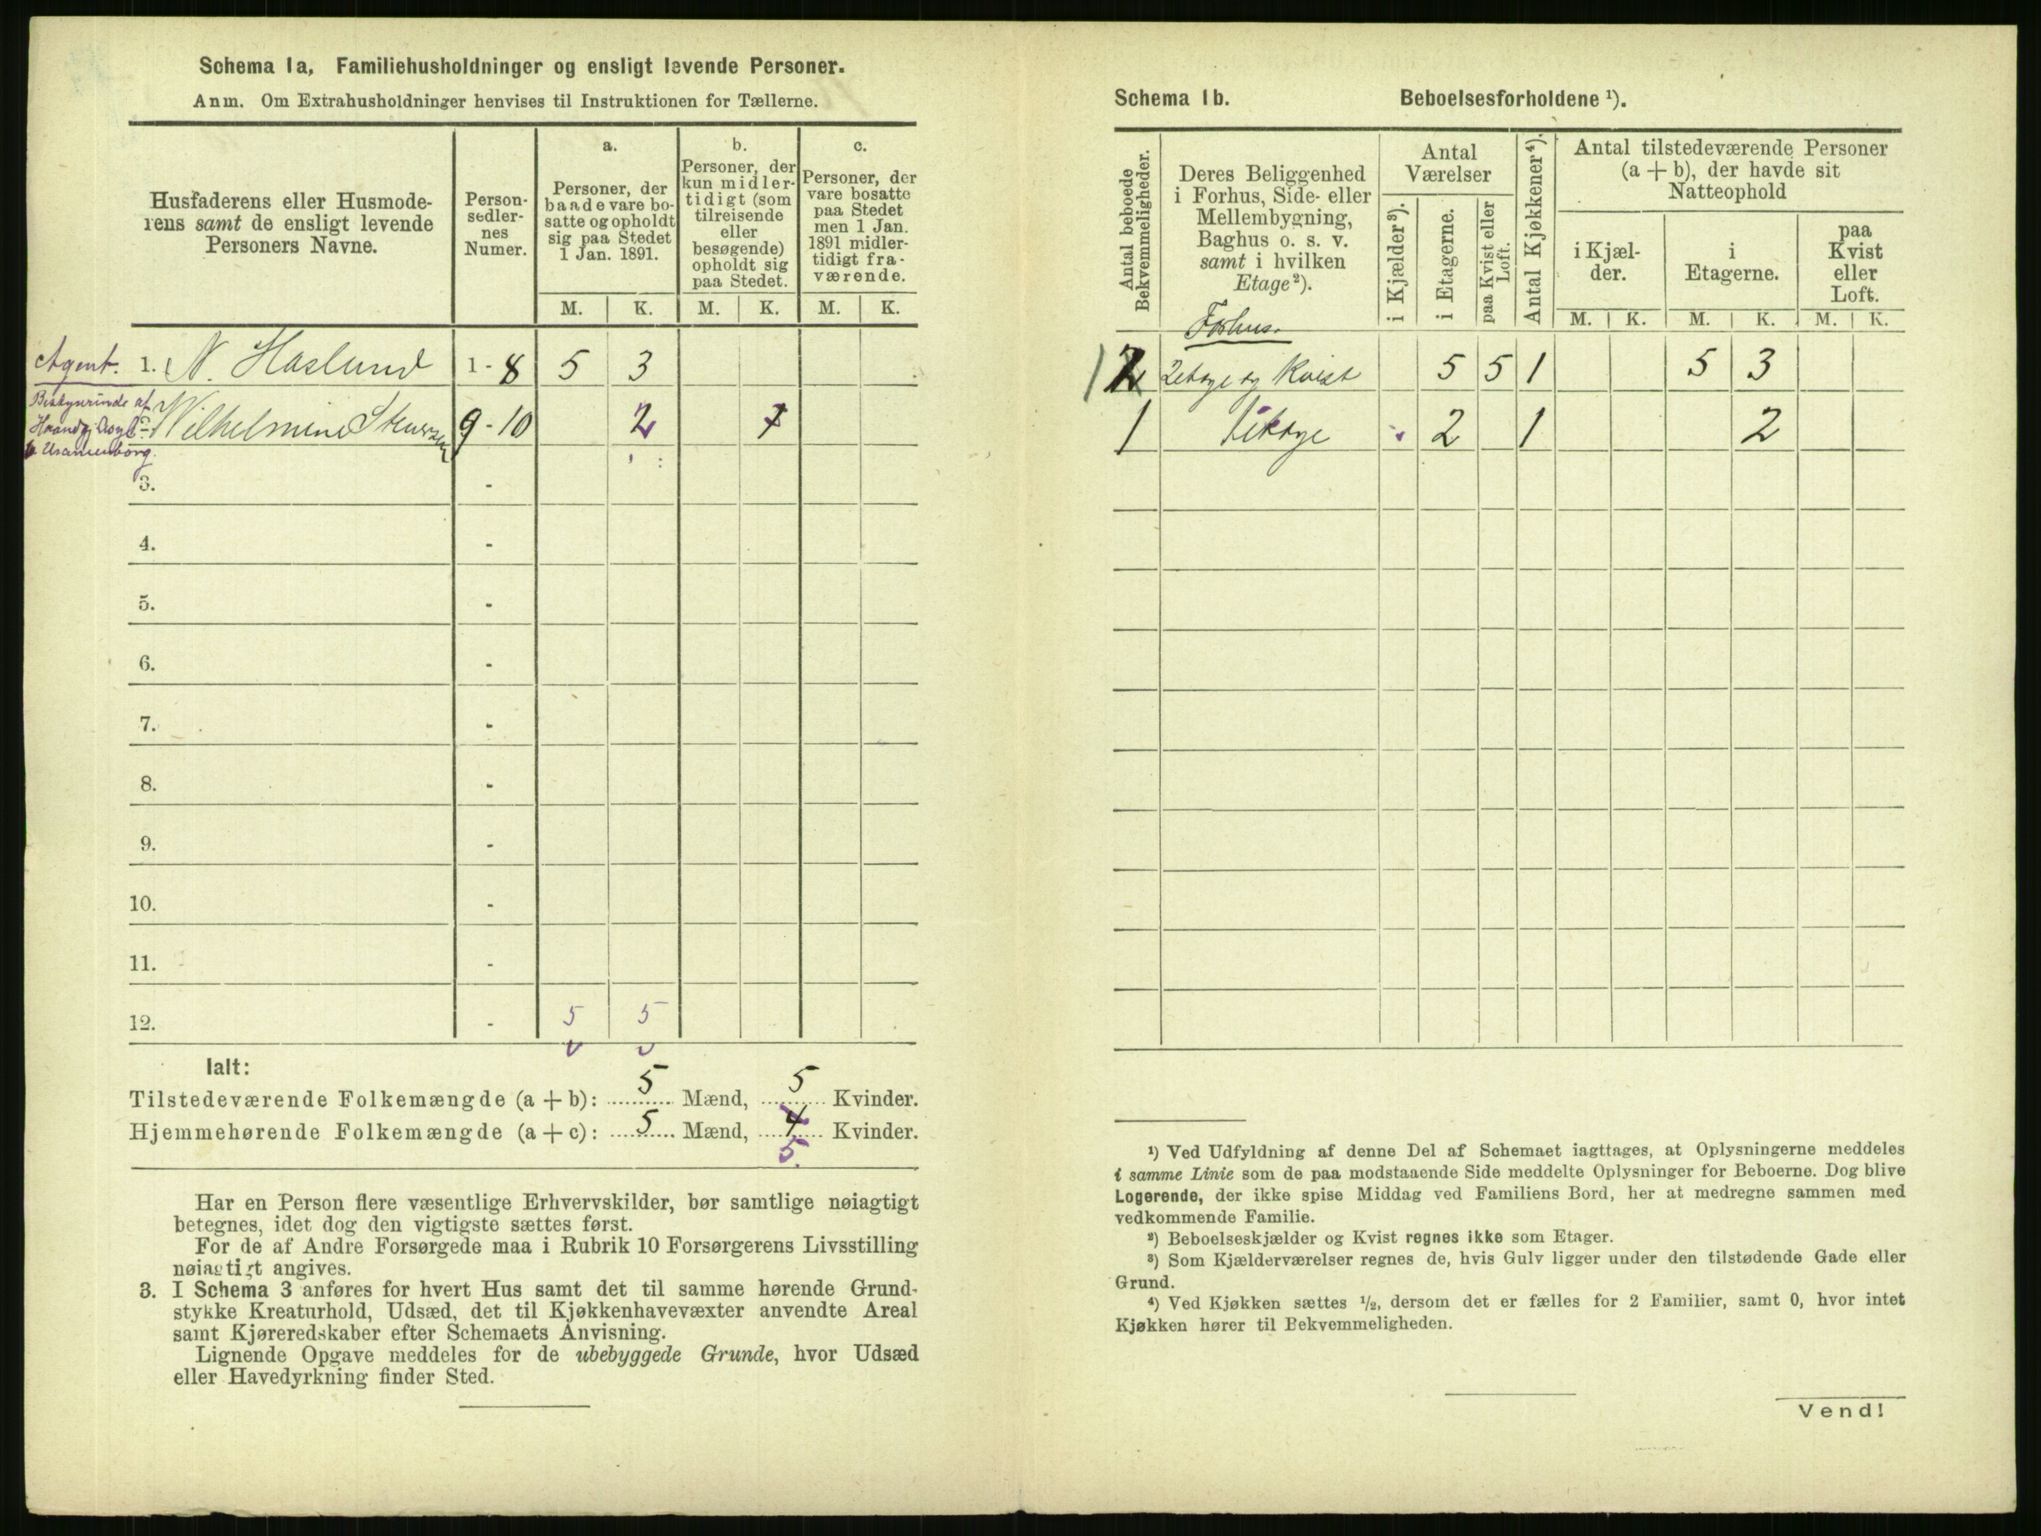 Schema 1a, Familiehusholdninger og ensligt levende Personer.
Anm. Om Extrahusholdninger henvises til Instruktionen for Tællerne.
Husfaderens eller Husmode-
rens samt de ensligt levende
Personers Navne.
Person-
sedler-
nes
Numer.
a.
Personer, der
baade vare bo-
satte og opholdt
sig paa Stedet
1 Jan. 1891.
b.
Personer, der
kun midler-
tidigt (som
tilreisende
eller
besøgende)
opholdt sig
paa Stedet.
c.
Personer, der
vare bosatte
paa Stedet
men 1 Jan.
1891 midler-
tidigt fra-
værende.
M. K. M. K. M. K.
Agent. 1. N. Haslund 1 - 8 5 3
Bestyrinde af
Haandg. Asyl
Wilhelmine Stenersen 9 - 10 2
Uranienborg.
3. -
4. -
5. -
6. -
7. -
8. -
9. -
10. -
11. -
12. - 5 5
Ialt:
Tilstedeværende Folkemængde (a + b): 5 Mænd, 5 Kvinder.
Hjemmehørende Folkemængde (a + c): 5 Mænd, 4 Kvinder.
5.
Har en Person flere væsentlige Erhvervskilder, bør samtlige nøiagtigt
betegnes, idet dog den vigtigste sættes først.
For de af Andre Forsørgede maa i Rubrik 10 Forsørgerens Livsstilling
nøiagtigt angives.
3. I Schema 3 anføres for hvert Hus samt det til samme hørende Grund-
stykke Kreaturhold, Udsæd, det til Kjøkkenhavevæxter anvendte Areal
samt Kjøreredskaber efter Schemaets Anvisning.
Lignende Opgave meddeles for de ubebyggede Grunde, hvor Udsæd
eller Havedyrkning finder Sted.
Schema 1b. Beboelsesforholdene ¹).
Antal beboede
Bekvemmeligheder.
Deres Beliggenhed
i Forhus, Side- eller
Mellembygning,
Baghus o. s. v.
samt i hvilken
Etage²).
Antal
Værelser
i Kjælder³).
i Etagerne.
paa Kvist eller
Loft.
Antal Kjøkkener⁴).
Antal tilstedeværende Personer
(a + b), der havde sit
Natteophold
i Kjæl-
der.
i
Etagerne.
paa
Kvist
eller
Loft.
M. K. M. K. M. K.
Forhus.
1 2 2 etage og Kvist 5 5 1 5 3
1 1 etage 2 1 2
¹) Ved Udfyldning af denne Del af Schemaet iagttages, at Oplysningerne meddeles
i samme Linie som de paa modstaaende Side meddelte Oplysninger for Beboerne. Dog blive
Logerende, der ikke spise Middag ved Familiens Bord, her at medregne sammen med
vedkommende Familie.
²) Beboelseskjælder og Kvist regnes ikke som Etager.
³) Som Kjælderværelser regnes de, hvis Gulv ligger under den tilstødende Gade eller
Grund.
⁴) Ved Kjøkken sættes ½, dersom det er fælles for 2 Familier, samt 0, hvor intet
Kjøkken hører til Bekvemmeligheden.
Vend!